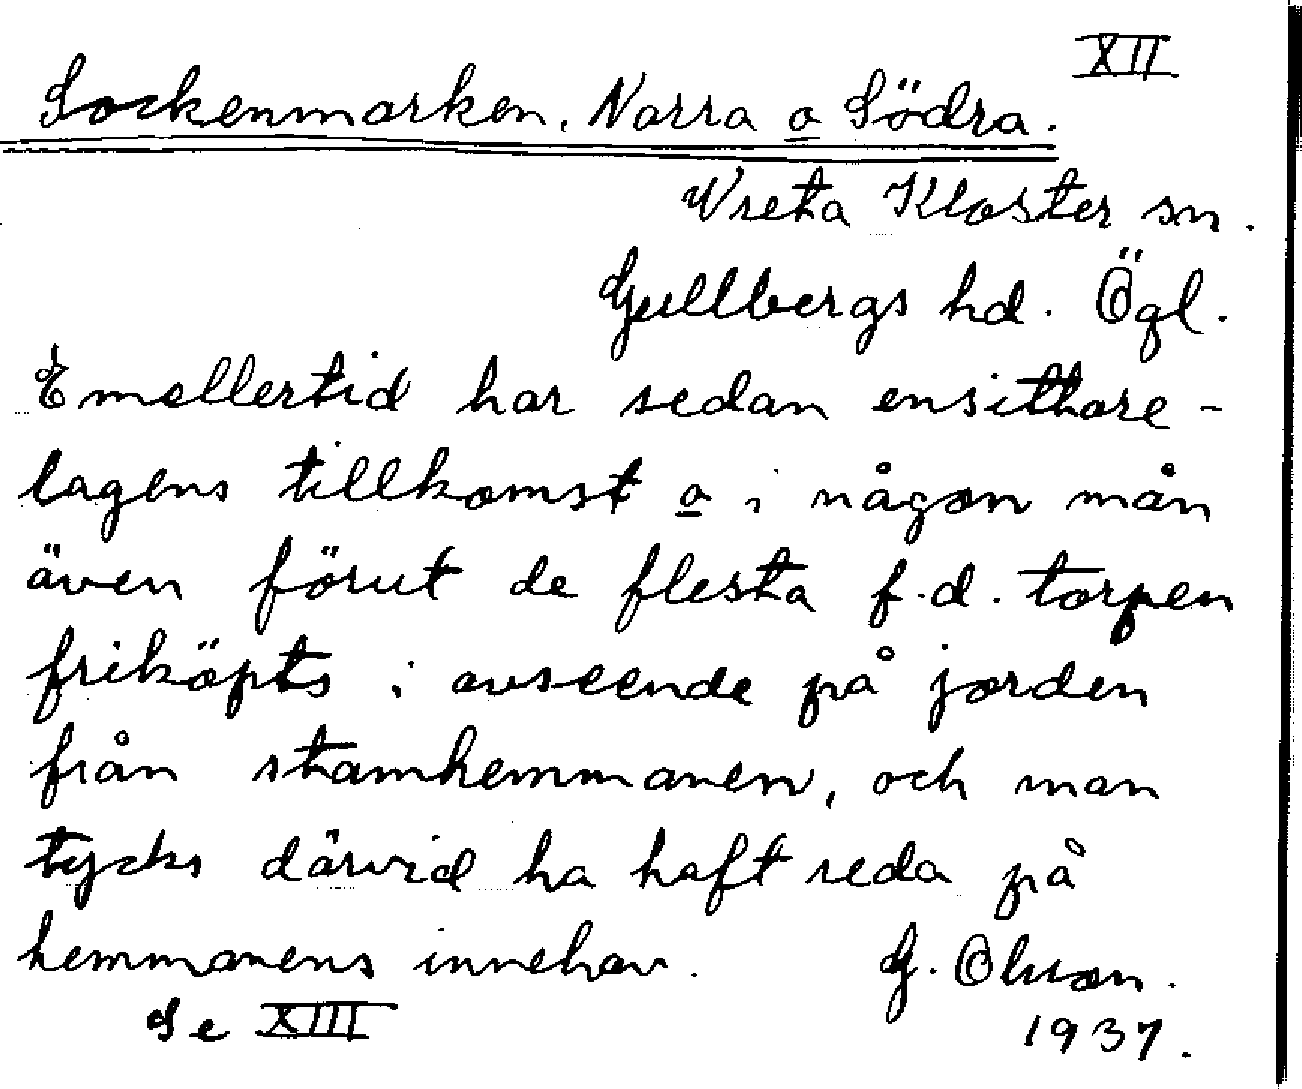 XII
Sockenmarken, Norra o Södra.
Vreta Kloster sn.
Gullbergs hd. Ögl.
Emellertid har sedan ensittare-
lagens tillkomst o i någon mån
även förut de flesta f.d. torpen
friköpts i avseende på jorden
från stamhemmanen, och man
tycks därvid ha haft reda på
hemmanens innehav. G. Olsson.
Se XIII 1937.